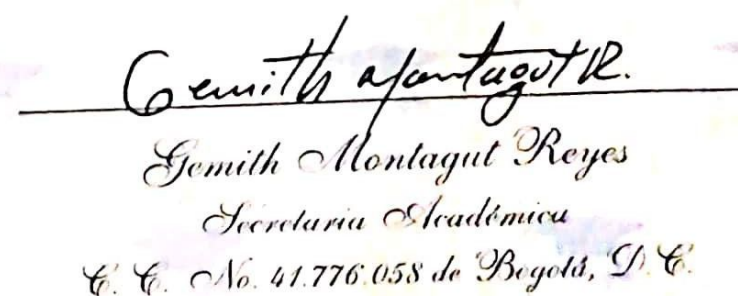 Gemith Montagut R.
Gemith Montagut Reyes
Secretaria Académica
C. C. No. 41.776.058 de Bogotá, D. C.